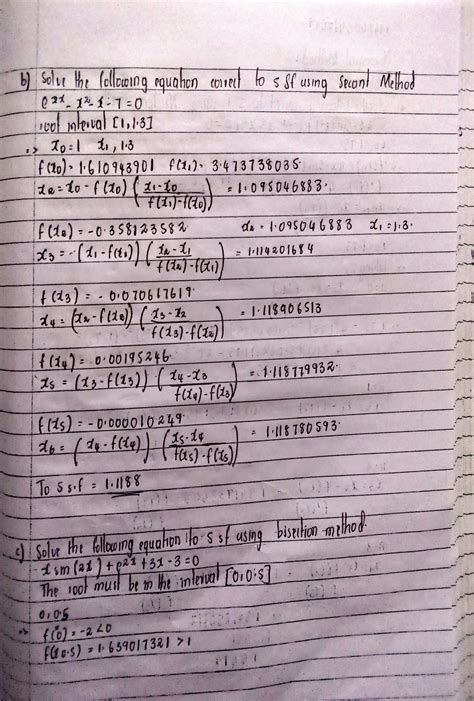 b) Solve the following equation correct to 5 sf using Secant Method
e^2x - x² - x - 7 = 0
root interval [1,1.3]
=> x0 = 1 x1, 1.3
f(x0) = 1.610943901 f(x1) = 3.473738035
x2 = x0 - f(x0) ( x1 - x0 / f(x1) - f(x0) ) = 1.095046883
f(x2) = -0.358123582 x2 = 1.095046883 x1 = 1.3
x3 = (x1 - f(x1)) ( x2 - x1 / f(x2) - f(x1) ) = 1.114201684
f(x3) = -0.070617619
x4 = (x2 - f(x2)) ( x3 - x2 / f(x3) - f(x2) ) = 1.118906513
f(x4) = 0.00195246
x5 = (x3 - f(x3)) ( x4 - x3 / f(x4) - f(x3) ) = 1.118779932
f(x5) = -0.000010249
x6 = ( x4 - f(x4) ) ( x5 - x4 / f(x5) - f(x5) ) = 1.118780593
To 5 s.f = 1.1188
c) Solve the following equation to 5 sf using bisection method
x sin (2x) + e^2x + 3x - 3 = 0
The root must be in the interval [0,0.5]
0, 0.5
=> f(0) = -2 < 0
f(0.5) = 1.639017321 > 1